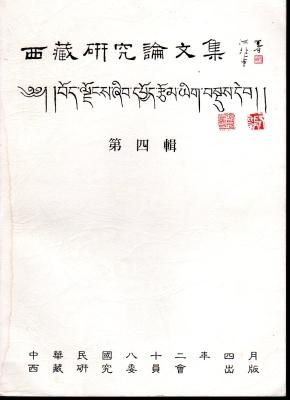 西藏研究論文集
༄༅། །བོད་ལྗོངས་ཞིབ་དཔྱོད་རྩོམ་ཡིག་བསྡུས་དེབ། །
第四輯
中華民國八十二年四月
西藏研究委員會出版